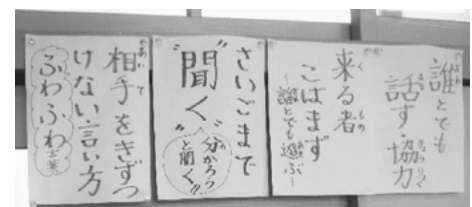 誰とでも
話す・協力
来る者
こばまず
～誰とでも遊ぶ～
さいごまで
“聞く”
分かろう
と聞く
相手をきずつ
けない言い方
ふわふわ言葉